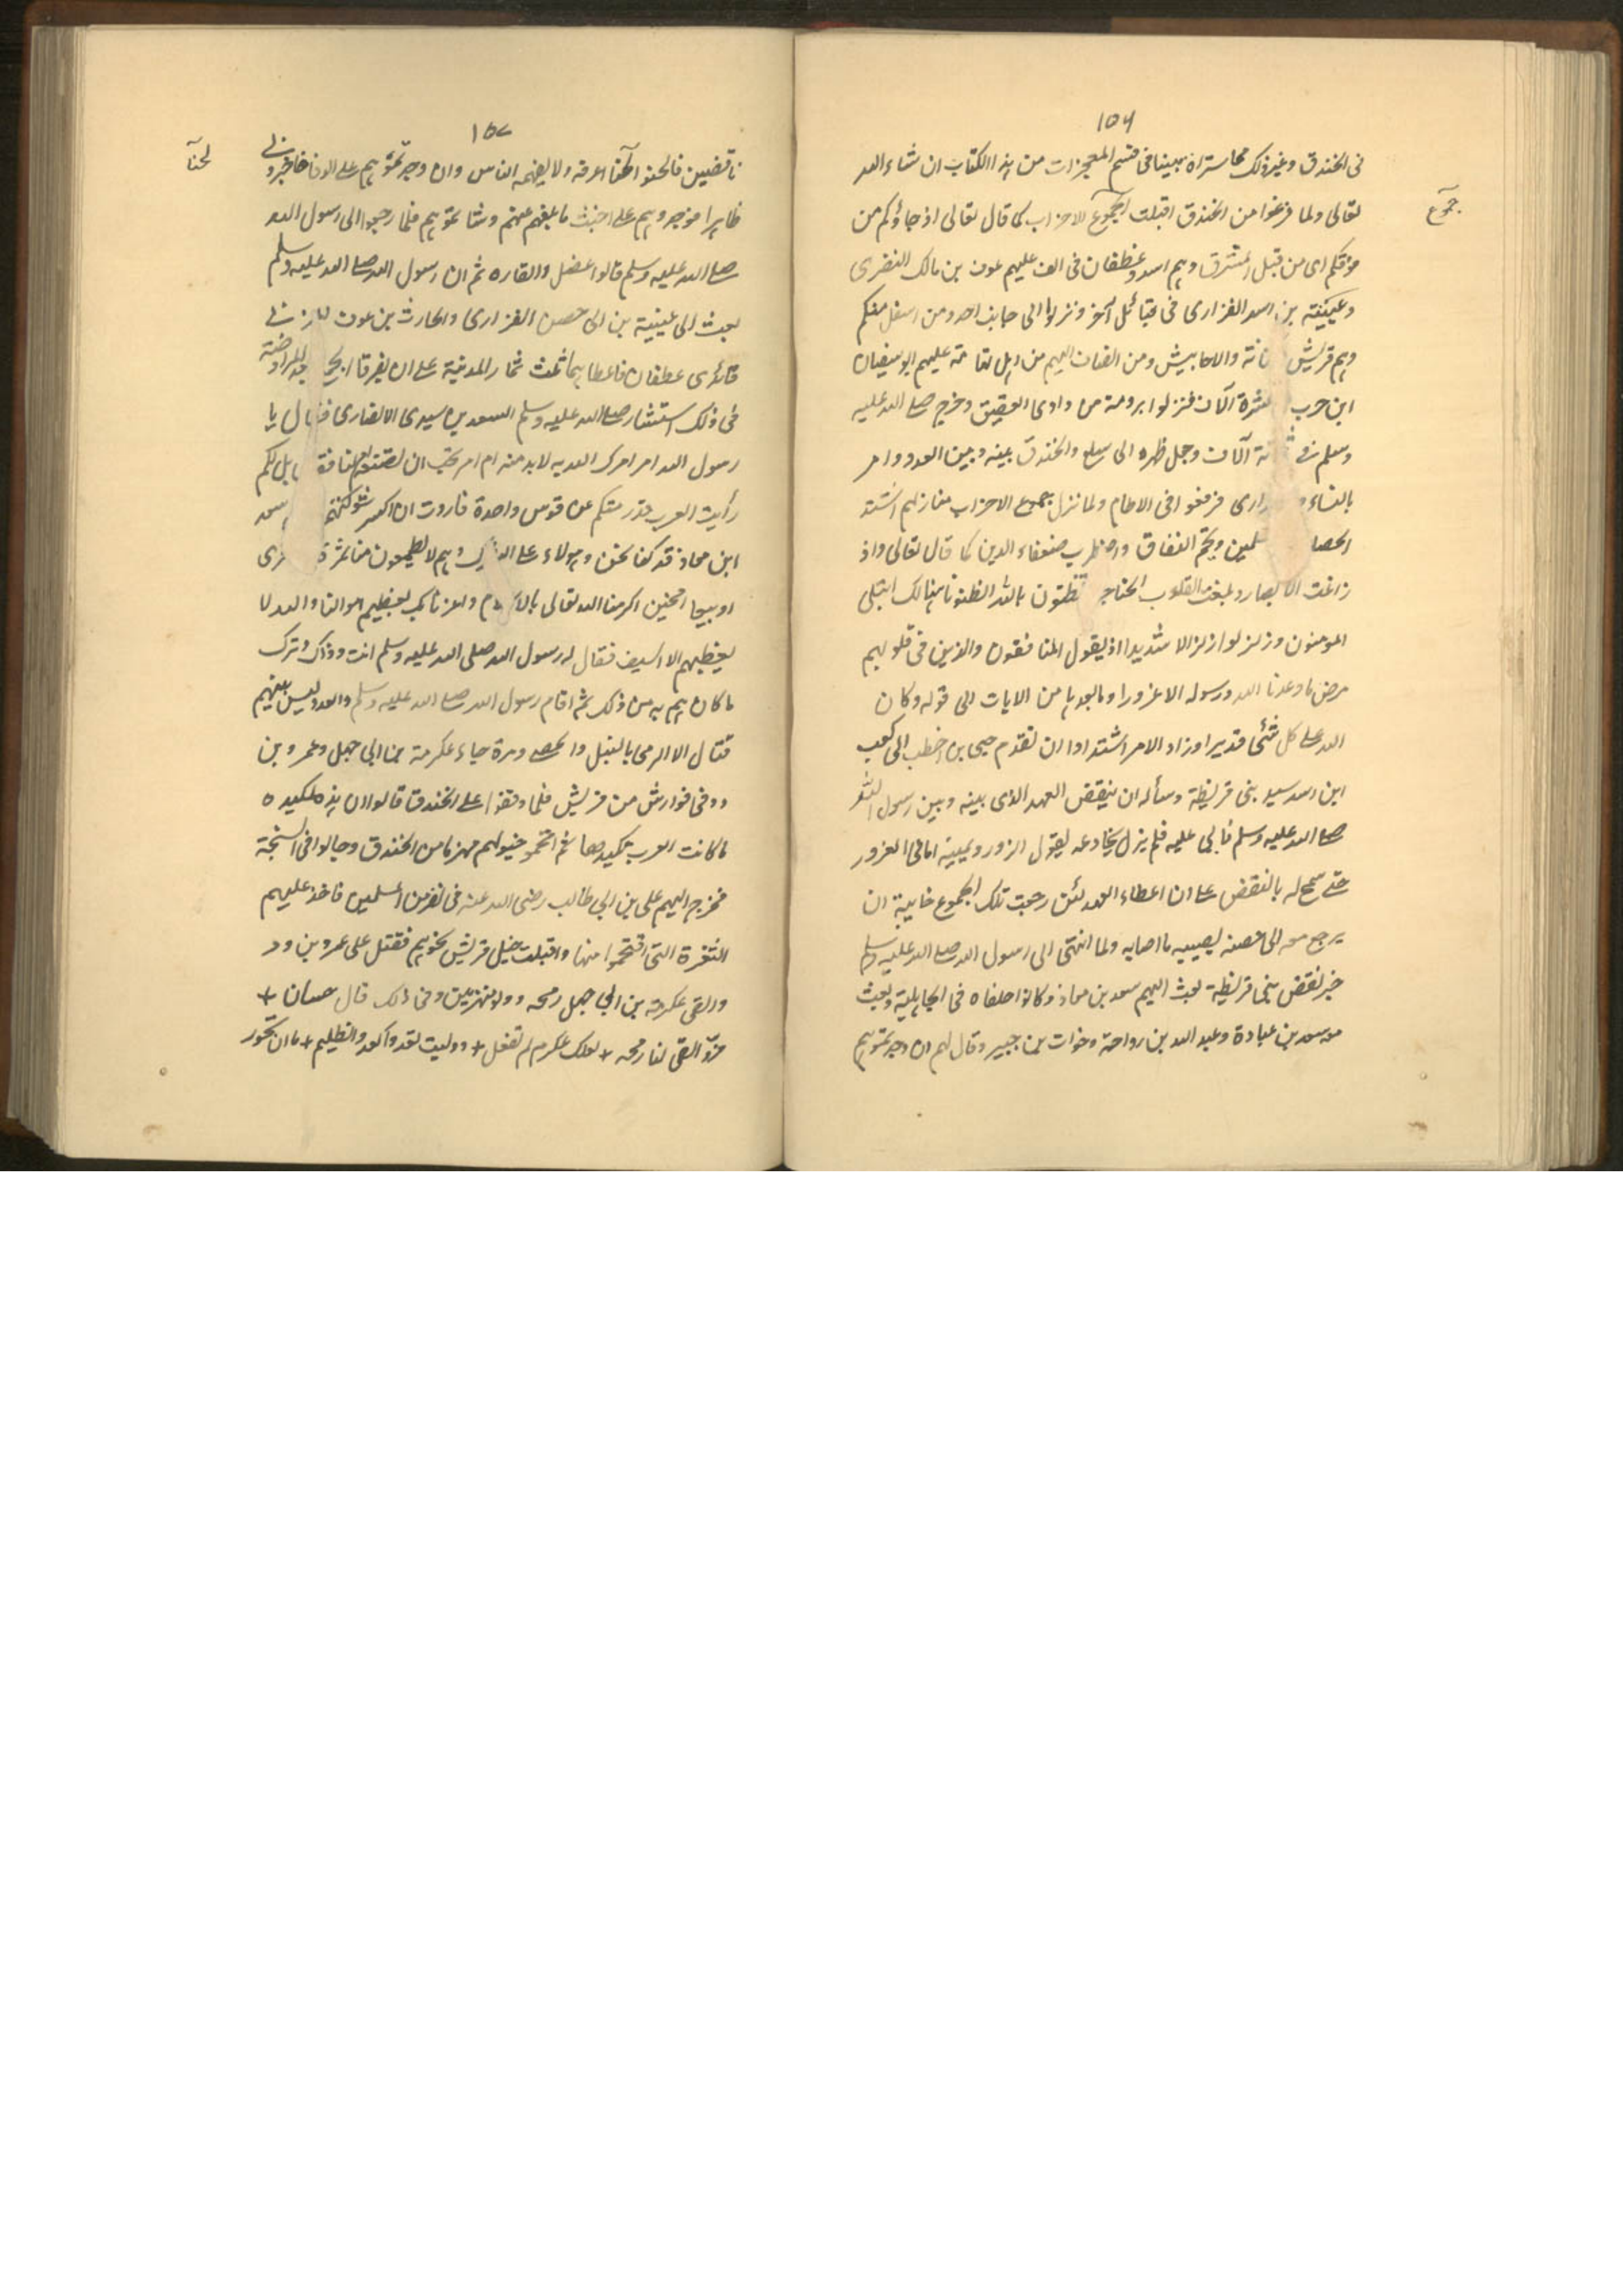 ١٥٦
فى الخندق وغير ذلك مما ستراه مبينا فى قسم المعجزات من هذا الكتاب ان شاء الله
جموع
تعالى ولما فرغوا من الخندق اقبلت جموع الاحزاب كما قال تعالى اذ جاؤكم من
فوقكم اى من قبل المشرق وهم اسد وغطفان فى الف عليهم عوف بن مالك النضرى
وعيينة بن اسد الفزارى فى قبائل آخر ونزلوا الى جانب احد ومن اسفل منكم
وهم قريش نانة والاحابيش ومن الضاف اليهم من اهل تهامة عليهم ابو سفيان
ابن حرب عشرة آلاف فنزلوا برومة من وادى العقيق وخرج صلى الله عليه
وسلم فى ثة آلاف وجعل ظهره الى سلع والخندق بينه وبين العدو وامر
بالنساء و رارى فرفعوا فى الاطام ولما نزل جموع الاحزاب منازلهم اشتد
الحصا لمين ونجم النفاق واضطرب ضعفاء الدين كما قال تعالى واذ
زاغت الابصار وبلغت القلوب الحناجر تظنون بالله الظنونا هنالك ابتلى
المومنون وزلزلوا زلزالا شديدا اذ يقول المنافقون والذين فى قلوبهم
مرض ما وعدنا الله ورسوله الا غرورا وما بعدها من الايات الى قوله وكان
الله على كل شئى قديرا وزاد الامر اشتدادا ان تقدم حيى بن اخطب الى كعب
ابن اسد سيد بنى قريظة وسأله ان ينقض العهد الذى بينه وبين رسول الله
صلى الله عليه وسلم فابى عليه فلم يزل يخادعه بقول الزور ويمنيه امانى الغرور
حتى سمح له بالنقض على ان اعطاه العهد لئن رجعت تلك الجموع خايبة ان
يرجع معه الى حصنه يصيبه ما اصابه ولما انتهى الى رسول الله صلى الله عليه وسلم
خبر نقض بنى قريظة بعث اليهم سعد بن معاذ وكانوا حلفاه فى الجاهلية وبعث
معه سعد بن عبادة وعبد الله بن رواحة وخوات بن جبير وقال لهم ان وجدتموهم
١٥٧
لحنا
ناقضين فالحنوا لحنا اعرفه ولا يفهمه الناس وان وجدتموهم على الوفا فاخبرونى
ظاهرا فوجدوهم على اخبث ما بلغهم عنهم وشاتموهم فلما رجعوا الى رسول الله
صلى الله عليه وسلم قالوا عضل والقاره ثم ان رسول الله صلى الله عليه وسلم
بعث الى عيينة بن حصن الفزارى والحارث بن عوف فى
قائدى غطفان فاعطاهما ثلث ثمار المدينة على ان يفرقا الجمع
فى ذلك استشار صلى الله عليه وسلم السعدين سيدى الانصارى فقال يا
رسول الله امر امرك الله به لابد منه ام امر تحب ان تصنعه لنا فقا بل لكم
رأيت العرب قد رمتكم عن قوس واحدة فاردت ان اكسر شوكتهم سعد
ابن معاذ قد كنا نحن وهولاء على الشرك وهم لا يطمعون منا ثمرة قرى
او بيعا افحين اكرمنا الله تعالى بالاسلام واعزنا بك نعطيهم اموالنا والله لا
نعطيهم الا السيف فقال له رسول الله صلى الله عليه وسلم انت وذاك وترك
ما كان هم به من ذلك ثم اقام رسول الله صلى الله عليه وسلم والعدو ليس بينهم
قتال الا الرمى بالنبل والحصى ومرة جاء عكرمة بن ابى جهل وعمرو بن
ود فى فوارس من قريش فلما وقفوا على الخندق قالوا ان هذه لمكيدة
ما كانت العرب تكيدها ثم اقحموا خيولهم مهزما من الخندق وجالوا فى السبخة
فخرج اليهم على بن ابى طالب رضى الله عنه فى نفر من المسلمين فاخذ عليهم
الثغرة التى اقتحموا منها واقبلت خيل قريش نحوهم فقتل على عمرو بن ود
والقى عكرمة بن ابى جهل رمحه وولوا منهزمين وفى ذلك قال حسان +
فرّ القى لنا رمحه + لعلك عكرم لم تفعل + ووليت تعدو كعدو الظليم + ما ان تحور